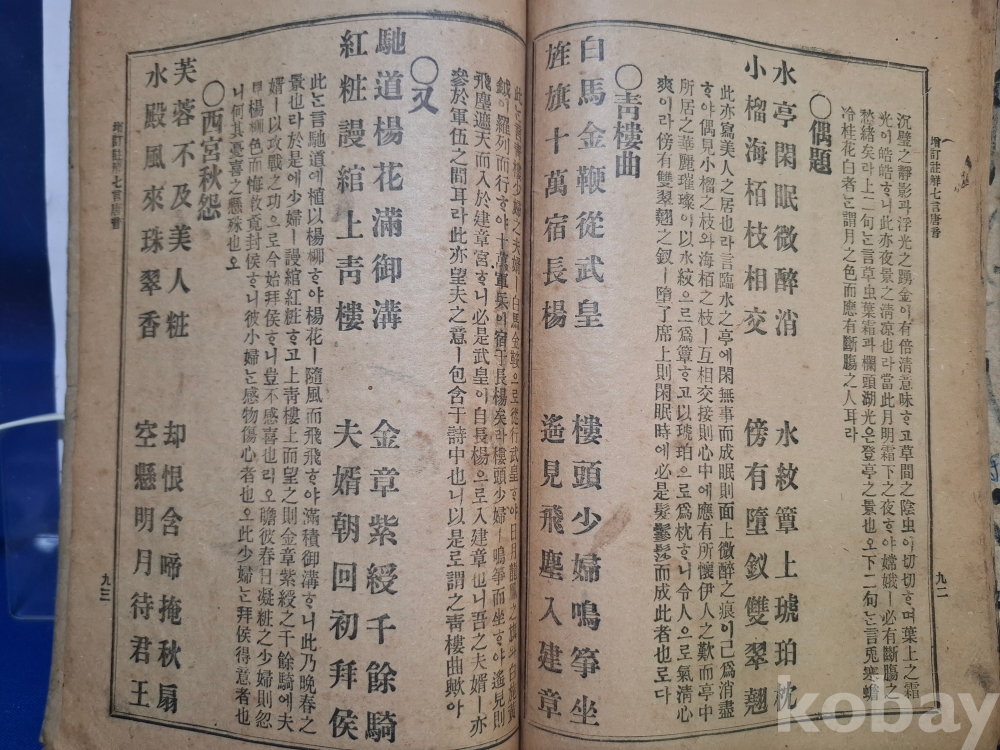 增訂註解七言唐音
九二
沉璧之靜影과浮光之踴金이有倍清意味ᄒᆞ고草間之陰虫이切切ᄒᆞ며葉上之霜
光이皓皓ᄒᆞ니此亦夜景之清凉也라當此月明霜下之夜ᄒᆞ야嫦娥ㅣ必有斷膓之
愁緒矣라上二句ᄂᆞᆫ言草虫葉霜과欄頭湖光은登亭之景也오下二句ᄂᆞᆫ言兎寒蟾
冷桂花白者ᄂᆞᆫ謂月之色而應有斷膓之人耳라
〇偶題
水亭閑眠微醉消 水紋簟上琥珀枕
小榴海栢枝相交 傍有墮釵雙翠翹
此亦寫美人之居也라言臨水之亭에閑無事而成眠則面上微醉之痕이已爲消盡
ᄒᆞ야偶見小榴之枝와海栢之枝ㅣ互相交接則心中에應有所懷伊人之歎而亭中
所居之華麗璀璨이以水紋으로爲簟ᄒᆞ고以琥珀으로爲枕ᄒᆞ니令人으로氣清心
爽이라傍有雙翠翹之釵ㅣ墮了席上則閑眠時에必是髮鬖鬆而成此者也로다
〇靑樓曲
白馬金鞭從武皇 樓頭少婦鳴箏坐
旌旗十萬宿長楊 遙見飛塵入建章
白馬金鞍으로從行武皇ᄒᆞ야日月龍
鉞이羅列而行ᄒᆞ야十萬軍兵이宿于長楊矣라樓頭少婦ㅣ鳴箏而坐ᄒᆞ야遙見則
飛塵遮天而入於建章宮ᄒᆞ니必是武皇이自長楊으로入建章也니吾之夫婿ㅣ亦
參於軍伍之間耳라此亦望夫之意ㅣ包含于詩中也니以是로謂之靑樓曲歟아
〇又
馳道楊花滿御溝 金章紫綬千餘騎
紅粧謾綰上靑樓 夫婿朝回初拜侯
此ᄂᆞᆫ言馳道에植以楊柳ᄒᆞ야楊花ㅣ隨風而飛飛ᄒᆞ야滿積御溝ᄒᆞ니此乃晚春之
景也라於是에少婦ㅣ謾綰紅粧ᄒᆞ고上靑樓上而望之則金章紫綬之千餘騎에夫
婿ㅣ以攻戰之功으로今始拜侯ᄒᆞ니豈不感喜也리오瞻彼春日凝粧之少婦則忽
見楊柳色而悔敎覓封侯ᄒᆞ니彼小婦ᄂᆞᆫ感物傷心者也오此少婦ᄂᆞᆫ拜侯得意者也
니何其憂喜之懸殊也오
〇西宮秋怨
芙蓉不及美人粧 却恨含啼掩秋扇
水殿風來珠翠香 空懸明月待君王
增訂註解七言唐音
九三
kobay